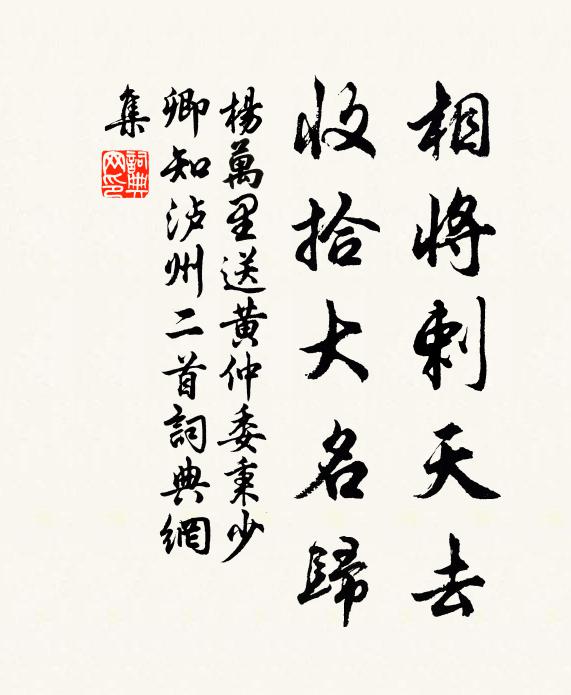 相將刺天去
收拾大名歸
楊萬里送黄仲委秉少
卿知泸州二首詞典網
集
詞典网印